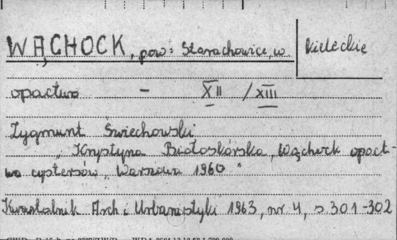 WĄCHOCK, pow: Starachowice, w. kieleckie
opactwo - XII / XIII
Zygmunt Świechowski
„Krystyna Białoskórska, Wąchock opact-
wo cystersów, Warszawa 1960"
Kwartalnik Arch i Urbanistyki 1963, nr 4, s 301-302